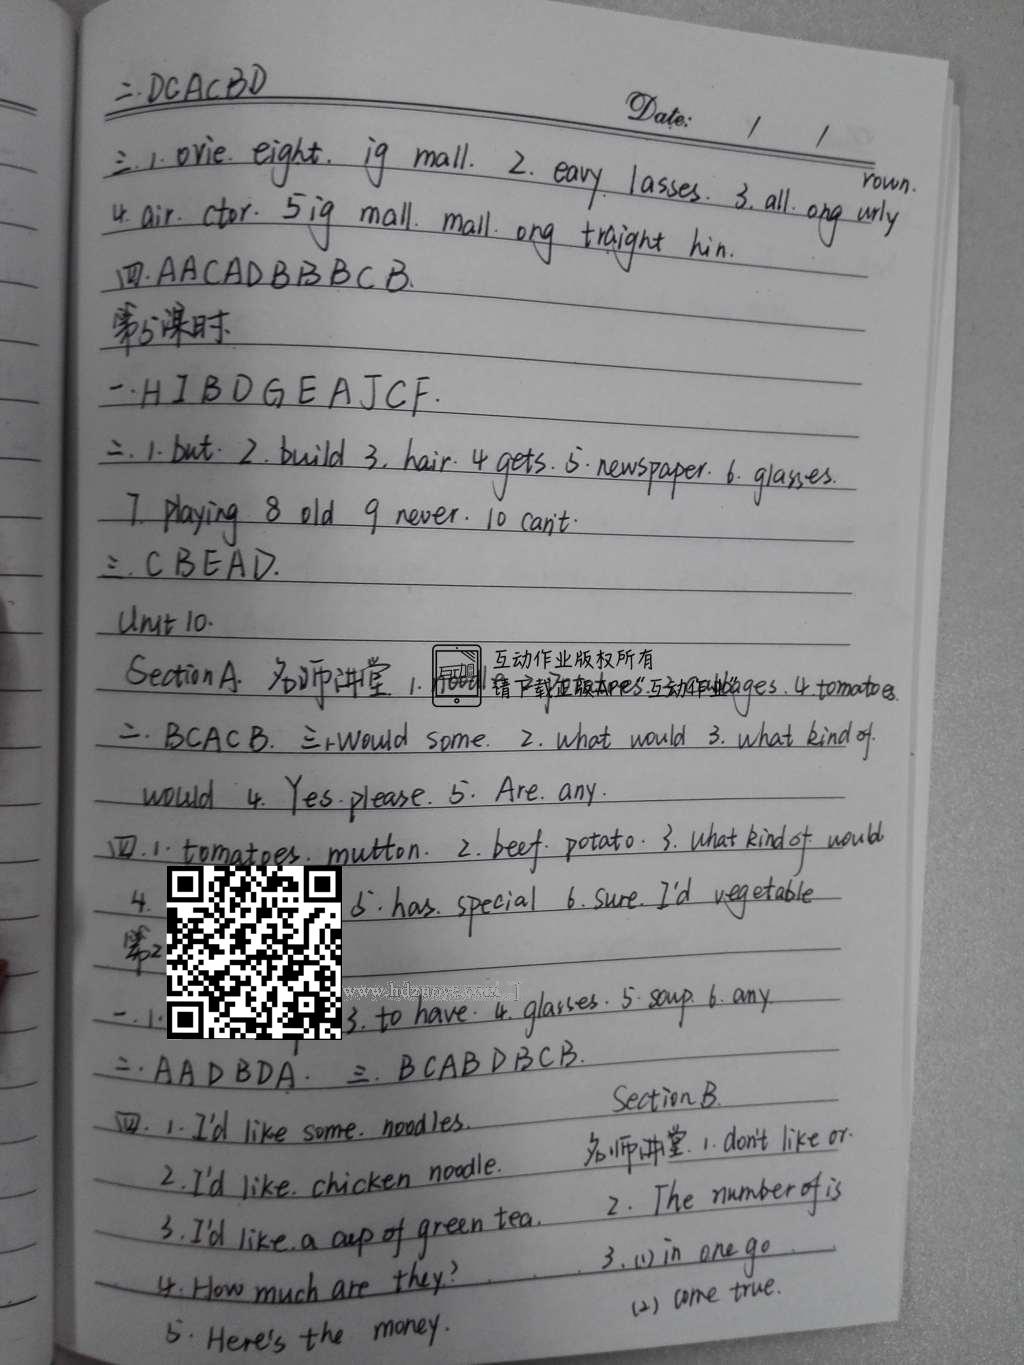 二.DCACBD
Date: / /
三.1.ovie. eight. ig mall. 2. eavy lasses. 3. all. ong urly rown.
4. air. ctor. 5 ig mall. mall. ong traight hin.
四.AACADBBBCB.
第5课时.
一.HIBDGEAJCF.
二.1.but. 2.build 3.hair. 4 gets. 5.newspaper. 6.glasses.
7. playing 8 old 9 never. 10 can't.
三.CBEAD.
Unit 10.
互动作业版权所有
请下载正版APP“互动作业”
Section A. 名师讲堂 1. 4.tomatoes.
二.BCACB. 三.1.Would some. 2. What would 3. what kind of.
would 4. Yes.please. 5. Are. any.
四.1.tomatoes. mutton. 2.beef. potato. 3. What kind of. would
4. 5.has. special 6.sure. I'd vegetable
第2
一.1. 3. to have. 4. glasses. 5.soup. 6.any
二.AADBDA. 三.BCABDBCB.
四.1.I'd like some. noodles.
2.I'd like. chicken noodle.
3.I'd like.a cup of green tea.
4.How much are they?
5.Here's the money.
Section B.
名师讲堂.1.don't like or.
2. The number of is
3.(1)in one go
(2) come true.